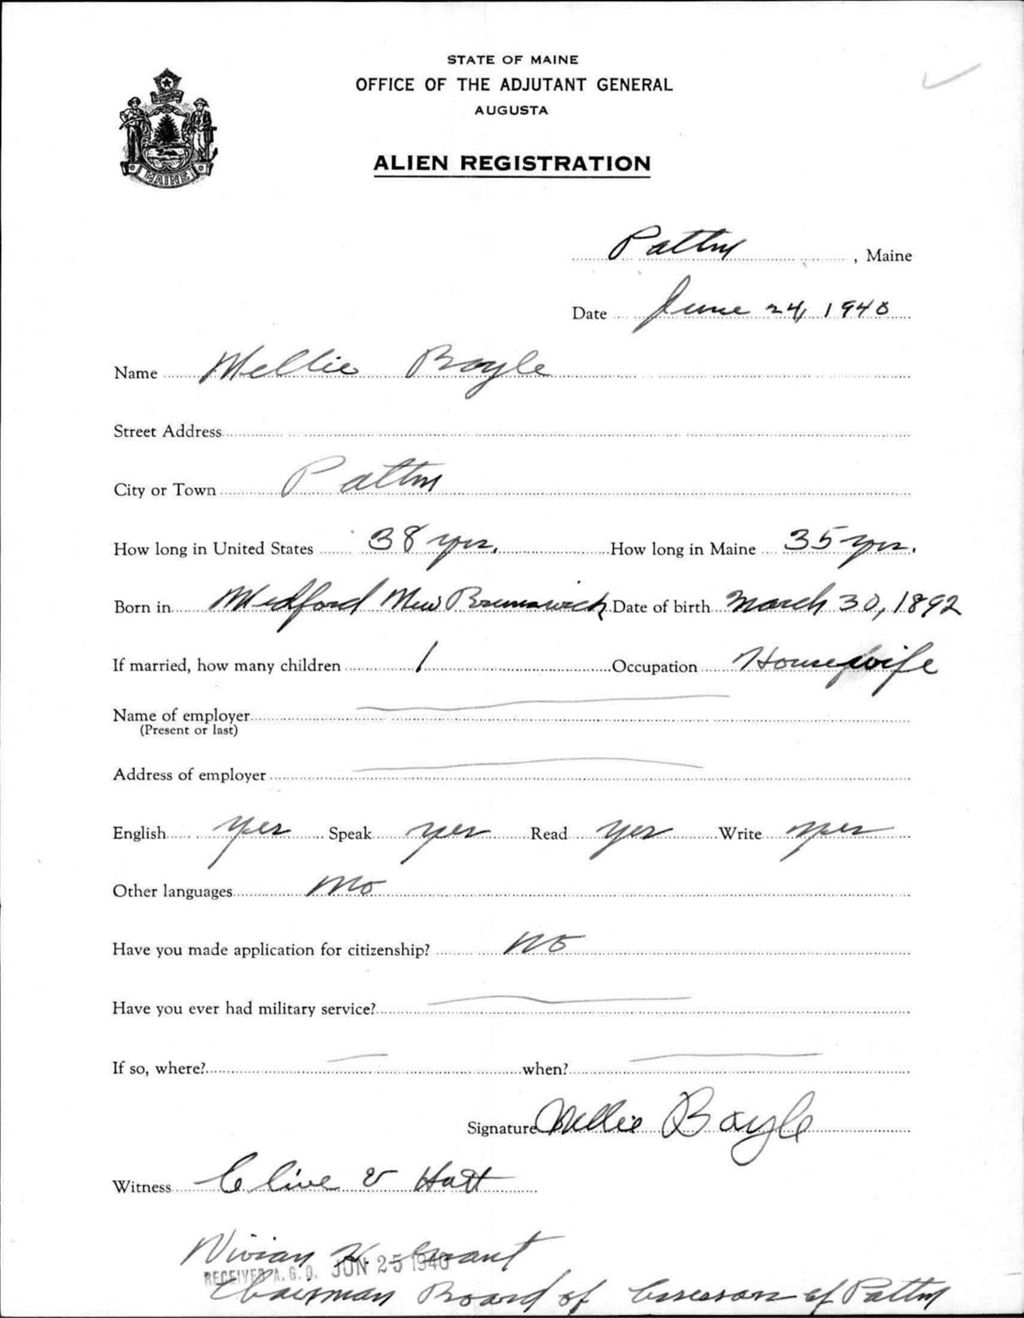 STATE OF MAINE
OFFICE OF THE ADJUTANT GENERAL
AUGUSTA
ALIEN REGISTRATION
MAINE
Patten, Maine
Date June 24, 1940
Name Nellie Boyle
Street Address
City or Town Patten
How long in United States 38 yrs. How long in Maine 35 yrs.
Born in Medford New Brunswick Date of birth March 30, 1892
If married, how many children 1 Occupation Housewife
Name of employer
(Present or last)
Address of employer
English yes Speak yes Read yes Write yes
Other languages No
Have you made application for citizenship? No
Have you ever had military service?
If so, where? when?
Signature Nellie Boyle
Witness Clive V Hatt
Vivian Grant
RECEIVED A.G.O. JUN 25 1940
Chairman Board of Assessors of Patten